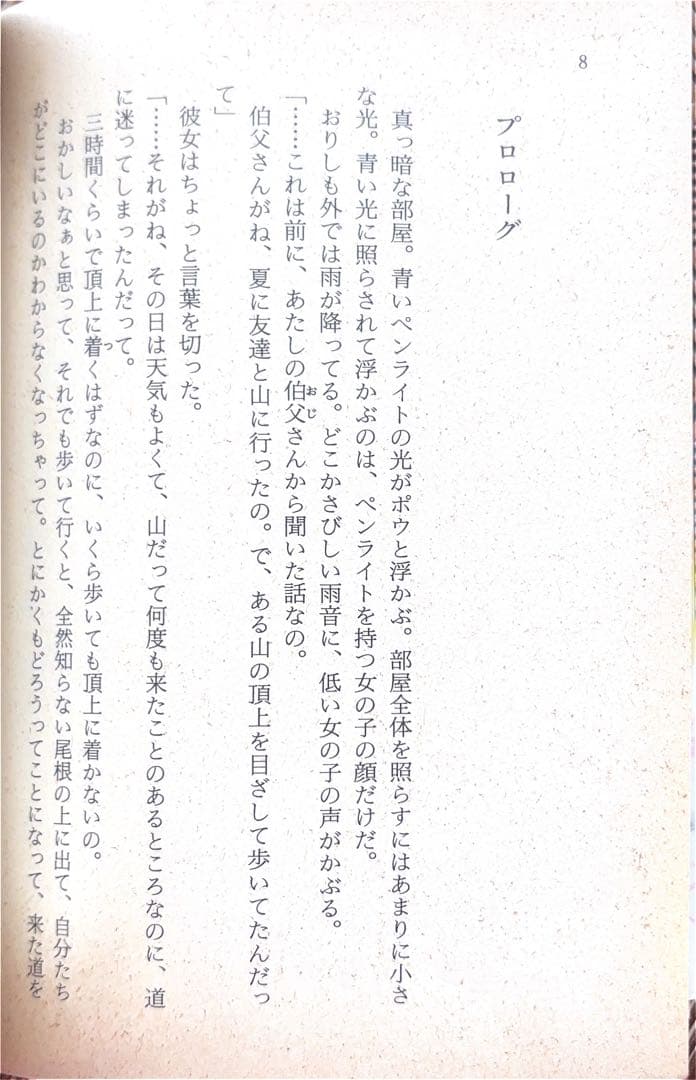 8
プロローグ
真っ暗な部屋。青いペンライトの光がポウと浮かぶ。部屋全体を照らすにはあまりに小さ
な光。青い光に照らされて浮かぶのは、ペンライトを持つ女の子の顔だけだ。
おりしも外では雨が降ってる。どこかさびしい雨音に、低い女の子の声がかぶる。
「……これは前に、あたしの伯父さんから聞いた話なの。
伯父さんがね、夏に友達と山に行ったの。で、ある山の頂上を目ざして歩いてたんだっ
て」
彼女はちょっと言葉を切った。
「……それがね、その日は天気もよくて、山だって何度も来たことのあるところなのに、道
に迷ってしまったんだって。
三時間くらいで頂上に着くはずなのに、いくら歩いても頂上に着かないの。
おかしいなぁと思って、それでも歩いて行くと、全然知らない尾根の上に出て、自分たち
がどこにいるのかわからなくなっちゃって。とにかくもどろうってことになって、来た道を